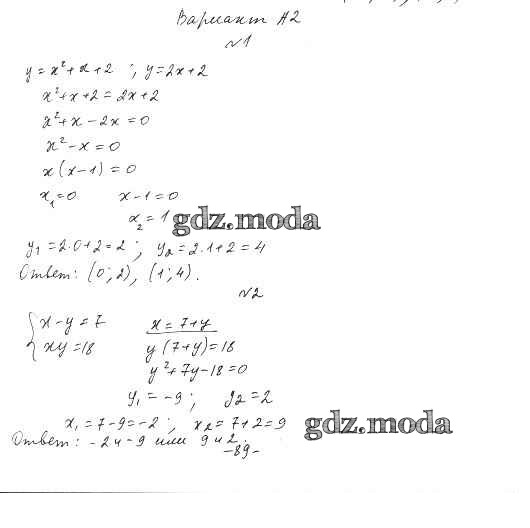 Вариант А2
№1
y = x² + x + 2 ; y = 2x + 2
x² + x + 2 = 2x + 2
x² + x - 2x = 0
x² - x = 0
x(x - 1) = 0
x₁ = 0 x - 1 = 0
x₂ = 1 gdz.moda
y₁ = 2·0 + 2 = 2 ; y₂ = 2·1 + 2 = 4
Ответ: (0; 2), (1; 4).
№2
{ x - y = 7 x = 7 + y
xy = 18 y(7 + y) = 18
y² + 7y - 18 = 0
y₁ = -9 ; y₂ = 2
x₁ = 7 - 9 = -2 ; x₂ = 7 + 2 = 9 gdz.moda
Ответ: -2 и -9 или 9 и 2.
-89-